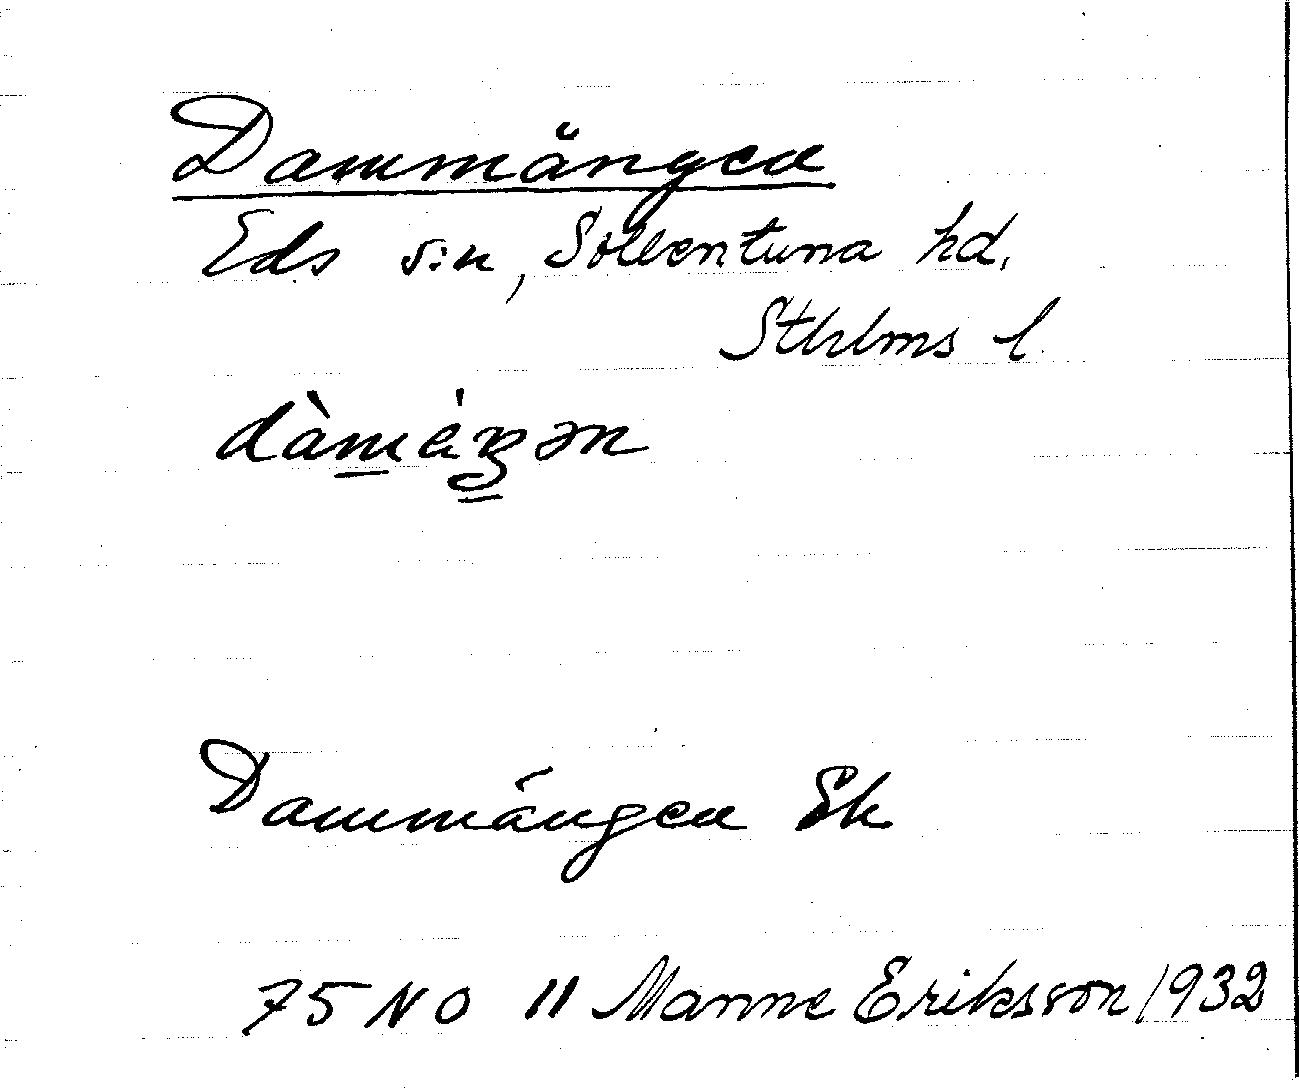 Dammängen
Eds s:n, Sollentuna hd,
Sthlms l
Dammängen Ek
75 NO 11 Manne Eriksson 1932